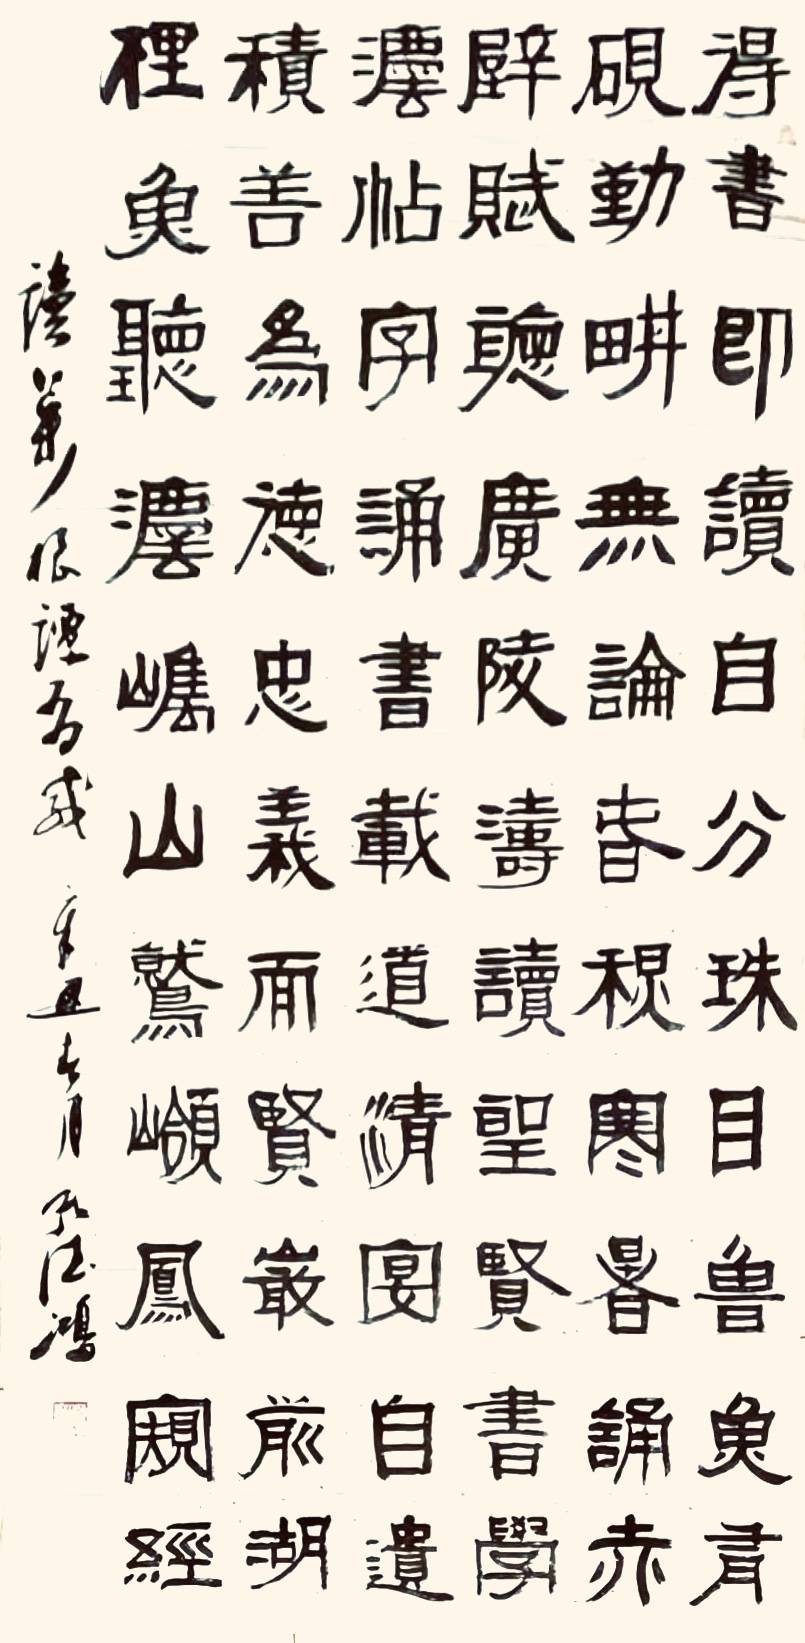 得書即讀自分珠目魯魚肓
硯勤畊無論春穏寒暑誦赤
辟賦聽廣陵濤讀聖賢書學
灋帖字誦書載道清宴自遺
積善為德忠義而賢嚴前湖
裡魚聽灋嶲山鷲嶺鳳窺經
讀葉根譚有感 辛丑春月 孔德鴻